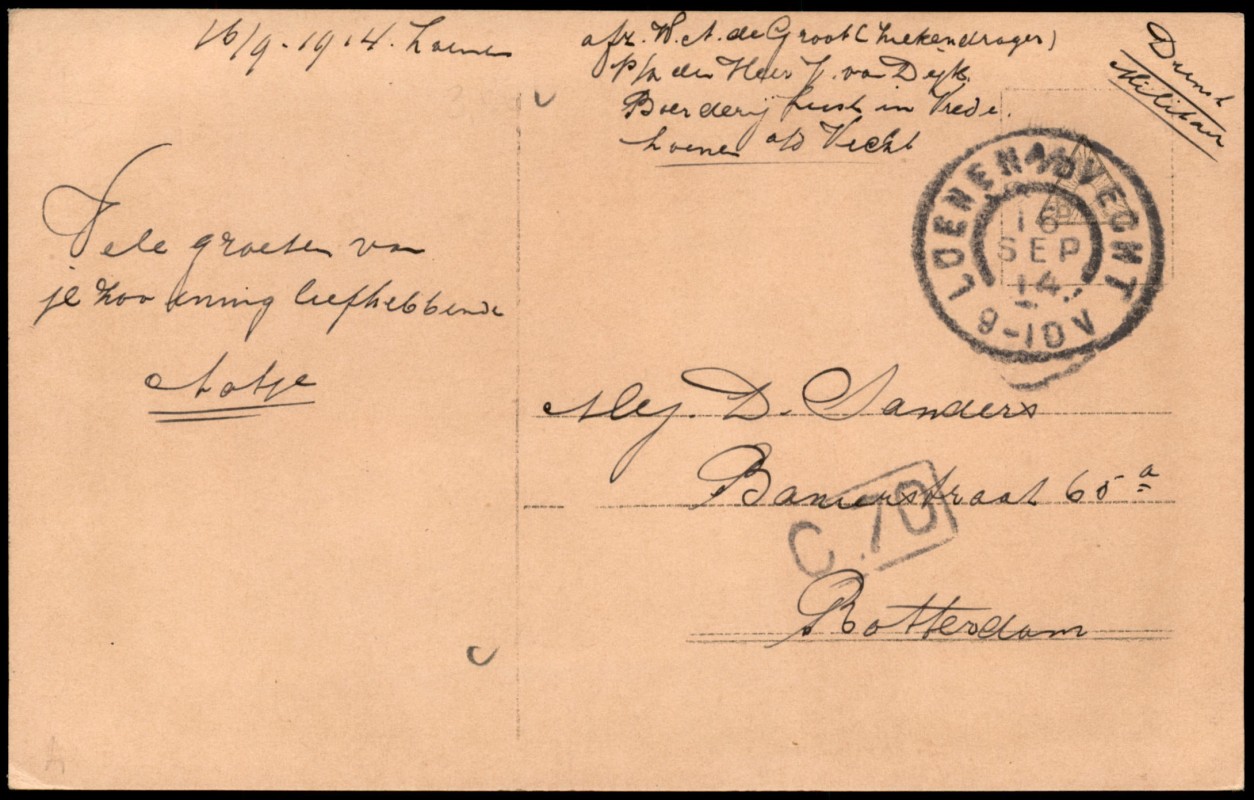 16/9-1914. Loenen
afz. W. A. de Groot (Ziekendrager)
p/a den Heer J. van Dijk.
Boerderij Lust in Vrede.
Loenen a/d Vecht
Dienst
Militair
LOENEN A/D VECHT
16
SEP
14
9-10V
Vele groeten van
je zoo innig liefhebbende
Mej. D. Sanders
Banierstraat 65 a
C.10
Rotterdam